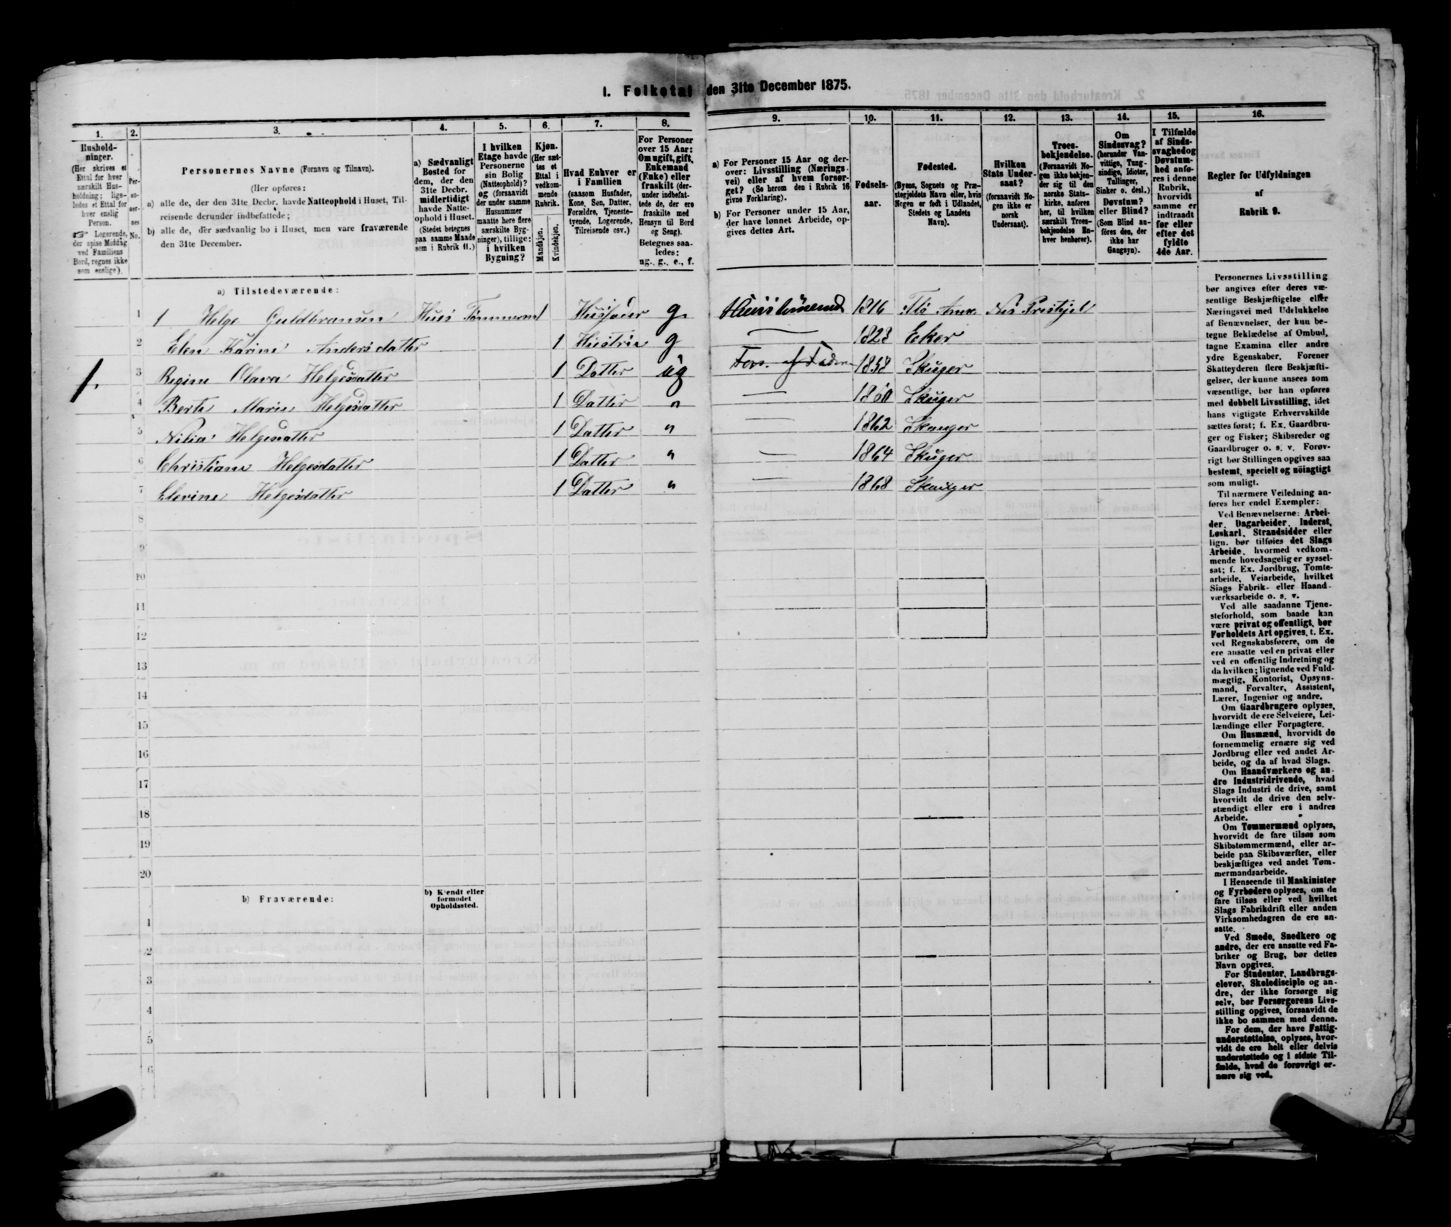 I. Folketal den 31te December 1875.
1.
2.
3.
4.
5.
6.
7.
8.
9.
10.
11.
12.
13.
14.
15.
16.
Hushold-
ninger.
(Her skrives et
Ettal for hver
særskilt Hus-
holdning; lige-
ledes et Ettal for
hver enslig
Person.
☞ Logerende,
der spise Middag
ved Familiens
Bord, regnes ikke
som enslige).
Per-
so-
ner-
nes
No.
Personernes Navne (Fornavn og Tilnavn).
(Her opføres:
a) alle de, der den 31te Decbr. havde Natteophold i Huset, Til-
reisende derunder indbefattede;
b) alle de, der sædvanlig bo i Huset, men vare fraværende
den 31te December.
a) Sædvanligt
Bosted for
dem, der den
31te Decbr.
midlertidigt
havde Natte-
ophold i Huset.
(Stedet betegnes
paa samme Maade
som i Rubrik 11.)
I hvilken
Etage havde
Personerne
sin Bolig
(Natteophold)?
og (forsaavidt
der under samme
Husnummer
maatte høre flere
særskilte Byg-
ninger), tillige:
i hvilken
Bygning?
Kjøn.
(Her sæt-
tes et
Ettal i
vedkom-
mende
Rubrik.
Mandkjøn.
Kvindekjøn.
Hvad Enhver er
i Familien
(saasom Husfader,
Kone, Søn, Datter,
Forældre, Tjeneste-
tyende, Logerende,
Tilreisende osv.)
For Personer
over 15 Aar:
Om ugift, gift,
Enkemand
(Enke) eller
fraskilt (der-
under indbefat-
tede de, der ere
fraskilte med
Hensyn til Bord
og Seng).
Betegnes saa-
ledes:
ug., g., e., f.
a) For Personer 15 Aar og der-
over: Livsstilling (Nærings-
vei) eller af hvem forsør-
get? (Se herom den i Rubrik 16
givne Forklaring).
b) For Personer under 15 Aar,
der have lønnet Arbeide, op-
gives dettes Art.
Fødsels-
aar.
Fødested.
(Byens, Sognets og Præ-
stegjeldets Navn eller, hvis
Nogen er født i Udlandet,
Stedets og Landets
Navn).
Hvilken
Stats Under-
saat?
(forsaavidt No-
gen ikke er
norsk
Undersaat).
Troes-
bekjendelse.
(Forsaavidt No-
gen ikke bekjen-
der sig til den
norske Stats-
kirke, anføres
her, til hvilken
særskilt Troes-
bekjendelse En-
hver henhører).
Om
Sindssvag?
(herunder Van-
vittige, Tung-
sindige, Idioter,
Tullinger,
Sinker o. desl.)
Døvstum?
eller Blind?
(Som Blind an-
føres den, der
ikke har
Gangsyn).
I Tilfælde
af Sinds-
svaghed og
Døvstum-
hed anfø-
res i denne
Rubrik,
hvorvidt
samme er
indtraadt
før eller
efter det
fyldte
4de Aar.
Regler for Udfyldningen
af
Rubrik 9.
a) Tilstedeværende:
1 1 Helge Guldbransen Huus Tømmermd 1 Husfader g. 1816
2 Elen Karine Andersdatter 1 Hustrue g — 1823 Eker
1. 3 Regine Olava Helgesdatter 1 Datter ug Fors. af Faderen 1858 Skuger
4 Berte Marie Helgesdatter 1 Datter " — 1860 Skuger
5 Helgesdatter 1 Datter " — 1862 Skauger
6 Christiane Helgesdatter 1 Datter " — 1864 Skuger
7 Elevine Helgesdatter 1 Datter " — 1868 Skauger
8
9
10
11
12
13
14
15
16
17
18
19
20
b) Fraværende:
b) Kjendt eller
formodet
Opholdssted.
1
2
3
4
5
6
Personernes Livsstilling
bør angives efter deres væ-
sentlige Beskjæftigelse eller
Næringsvei med Udelukkelse
af Benævnelser, der kun be-
tegne Beklædelse af Ombud,
tagne Examina eller andre
ydre Egenskaber. Forener
Skatteyderen flere Beskjæfti-
gelser, der kunne ansees som
væsentlige, bør han opføres
med dobbelt Livsstilling, idet
hans vigtigste Erhvervskilde
sættes først; f. Ex. Gaardbru-
ger og Fisker; Skibsreder og
Gaardbruger o. s. v. Forøv-
rigt bør Stillingen opgives saa
bestemt, specielt og nøiagtigt
som muligt.
Til nærmere Veiledning an-
føres her endel Exempler:
Ved Benævnelserne: Arbei-
der, Dagarbeider, Inderst,
Løskarl, Strandsidder eller
lign. bør tilføies det Slags
Arbeide, hvormed vedkom-
mende hovedsagelig er syssel-
sat; f. Ex. Jordbrug, Tomte-
arbeide, Veiarbeide, hvilket
Slags Fabrik- eller Haand-
værksarbeide o. s. v.
Ved alle saadanne Tjene-
steforhold, som baade kan
være privat og offentligt, bør
Forholdets Art opgives, t. Ex.
ved Regnskabsførere, om de
ere ansatte ved en privat eller
ved en offentlig Indretning og
da hvilken; lignende ved Fuld-
mægtig, Kontorist, Opsyns-
mand, Forvalter, Assistent,
Lærer, Ingeniør og andre.
Om Gaardbrugere oplyses,
hvorvidt de ere Selveiere, Lei-
lændinge eller Forpagtere.
Om Husmænd, hvorvidt de
fornemmelig ernære sig ved
Jordbrug eller ved andet Ar-
beide, og da af hvad Slags.
Om Haandværkere og an-
dre Industridrivende, hvad
Slags Industri de drive, samt
hvorvidt de drive den selv-
stændigt eller ere i andres
Arbeide.
Om Tømmermænd oplyses,
hvorvidt de fare tilsøs som
Skibstømmermænd, eller ar-
beide paa Skibsværfter, eller
beskjæftiges ved andet Tøm-
mermandsarbeide.
I Henseende til Maskinister
og Fyrbødere oplyses, om de
fare tilsøs eller ved hvilket
Slags Fabrikdrift eller anden
Virksomhedsgren de ere an-
satte.
Ved Smede, Snedkere og
andre, der ere ansatte ved Fa-
briker og Brug, bør dettes
Navn opgives.
For Studenter, Landbrugs-
elever, Skoledisciple og an-
dre, der ikke forsørge sig
selv, bør Forsørgerens Livs-
stilling opgives, forsaavidt de
ikke bo sammen med denne.
For dem, der have Fattig-
understøttelse, oplyses, hvor-
vidt de ere helt eller delvis
understøttede og i sidste Til-
fælde, hvad de forøvrigt er-
nære sig ved.